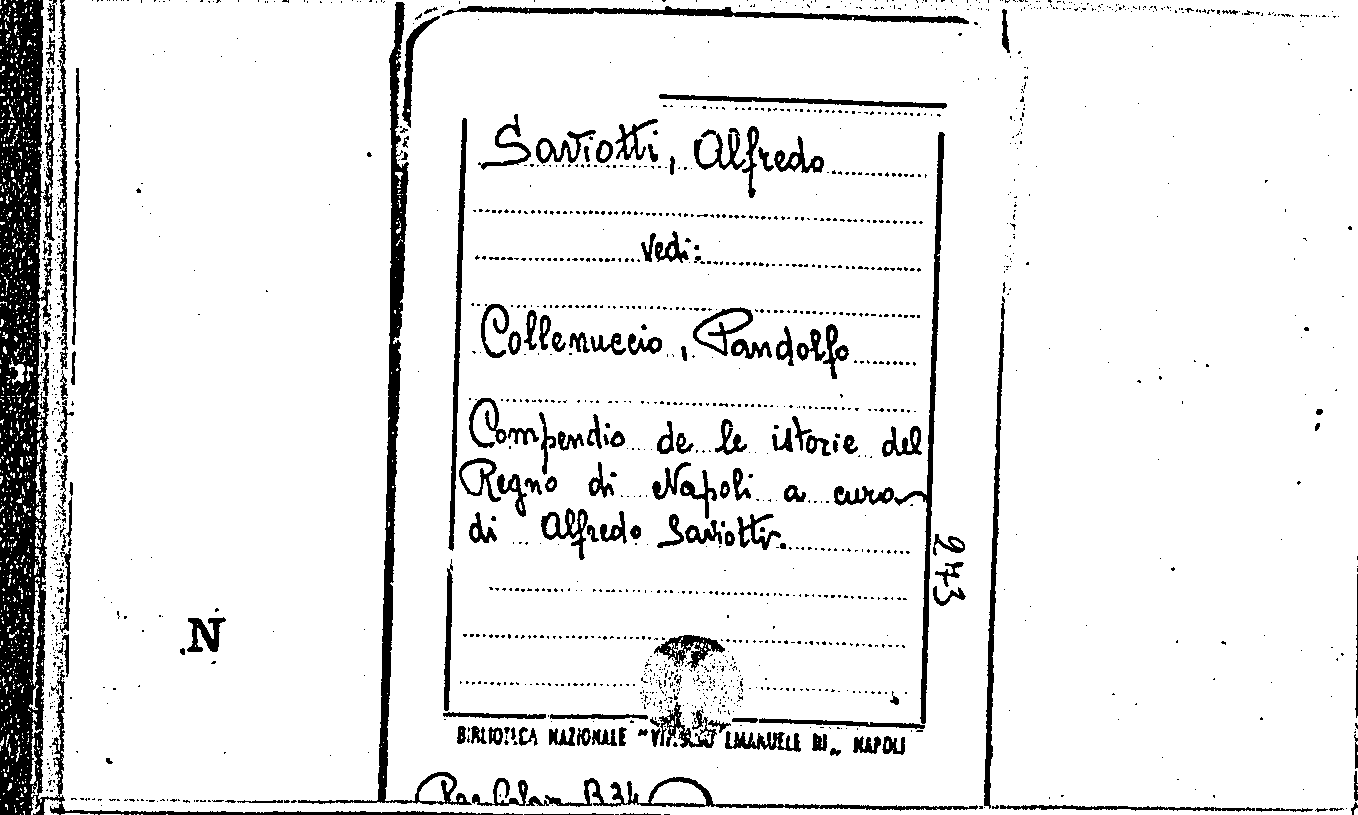 Saviotti, Alfredo
vedi:
Collenuccio, Pandolfo
Compendio de le istorie del
Regno di Napoli a cura
di Alfredo Saviotti.
243
N
BIBLIOTECA NAZIONALE "VITTORIO EMANUELE III" NAPOLI